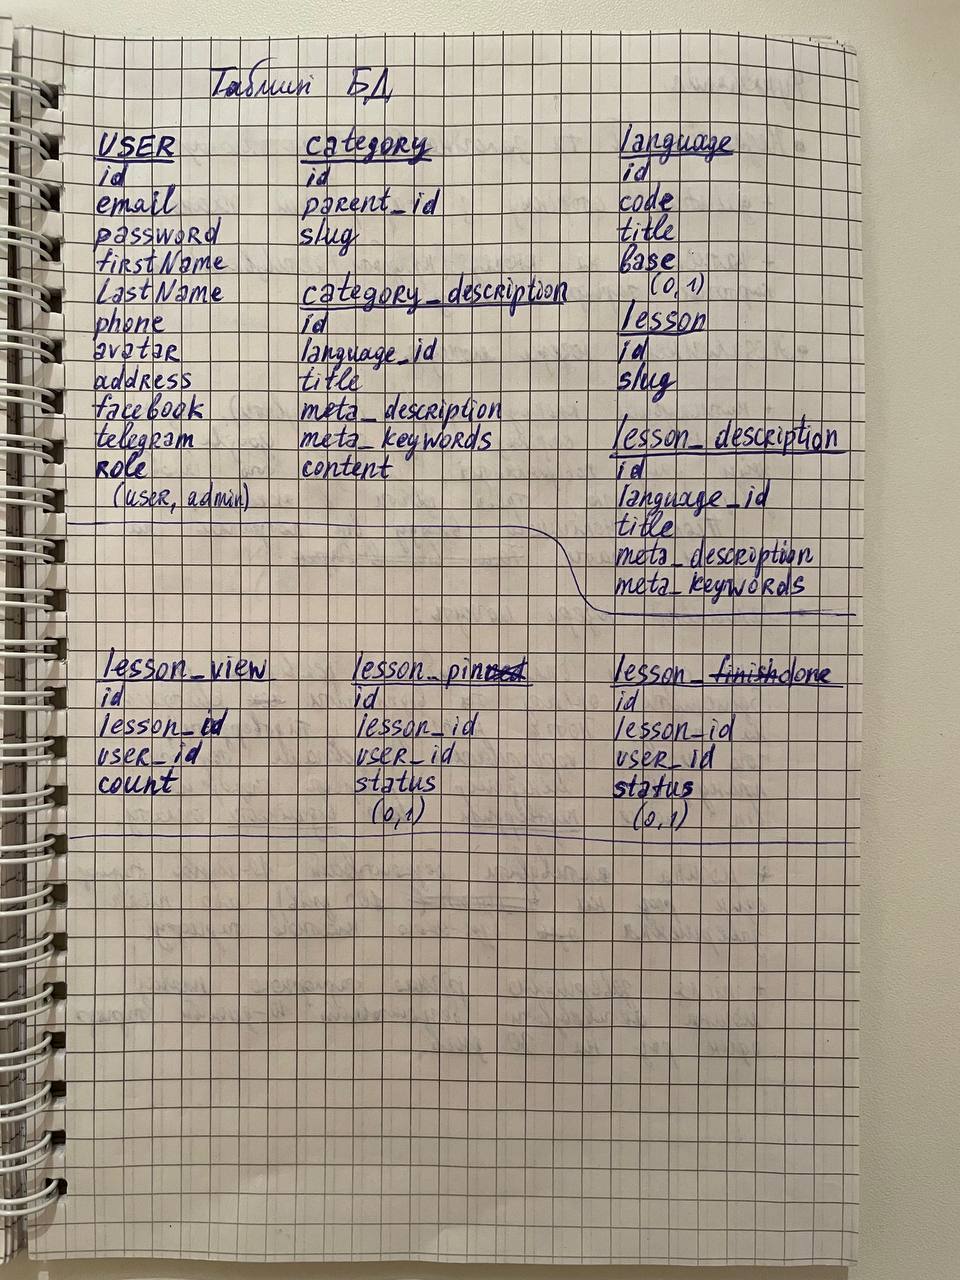 Таблиці БД
USER
id
email
password
firstName
LastName
phone
avatar
address
facebook
telegram
role
(user, admin)
category
id
parent_id
slug
category_description
id
language_id
title
meta_description
meta_keywords
content
language
id
code
title
base
(0,1)
lesson
id
slug
lesson_description
id
language_id
title
meta_description
meta_keywords
lesson_view
id
lesson_id
user_id
count
lesson_pinned
id
lesson_id
user_id
status
(0,1)
lesson_finishdone
id
lesson_id
user_id
status
(0,1)